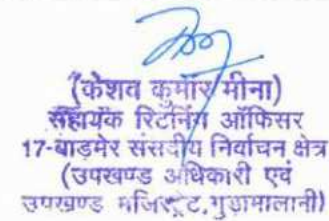 (केशव कुमार मीना)
सहायक रिटर्निंग ऑफिसर
17-बाड़मेर संसदीय निर्वाचन क्षेत्र
(उपखण्ड अधिकारी एवं
उपखण्ड मजिस्ट्रेट,गुडामालानी)